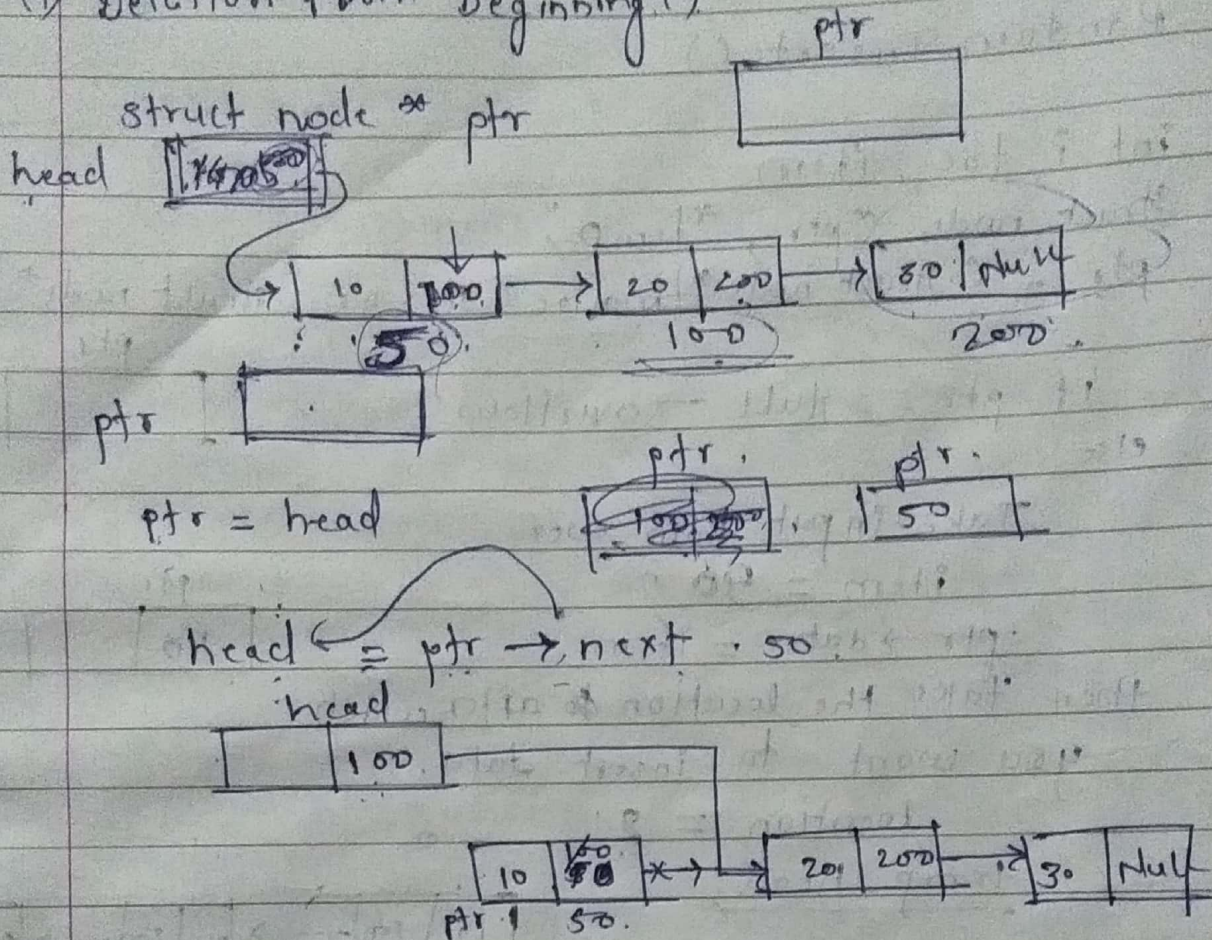 (1) Deletion from beginning :)
ptr
struct node * ptr
head
10 100 20 200 30 Null
50 100 200
ptr
ptr ptr
ptr = head 100 200 50
head = ptr → next 50
head
100
10 100 20 200 30 Null
ptr 50